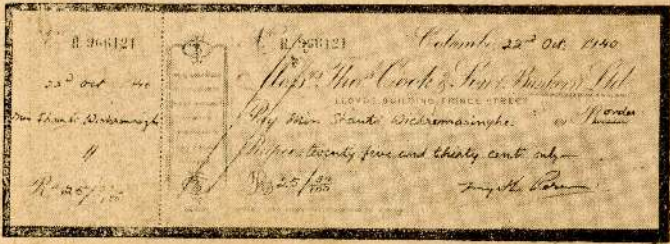 R 966121
22nd Oct 40
Miss Shanti Wickremasinghe
"
R 966121
Colombo, 22nd Oct. 1940
Messrs Thos Cook & Son (Bankers) Ltd.
LLOYD'S BUILDING, PRINCE STREET
Pay Miss Shanti Wickremasinghe or order
Rupees twenty five and thirty cents only—
Rs 25/30/100